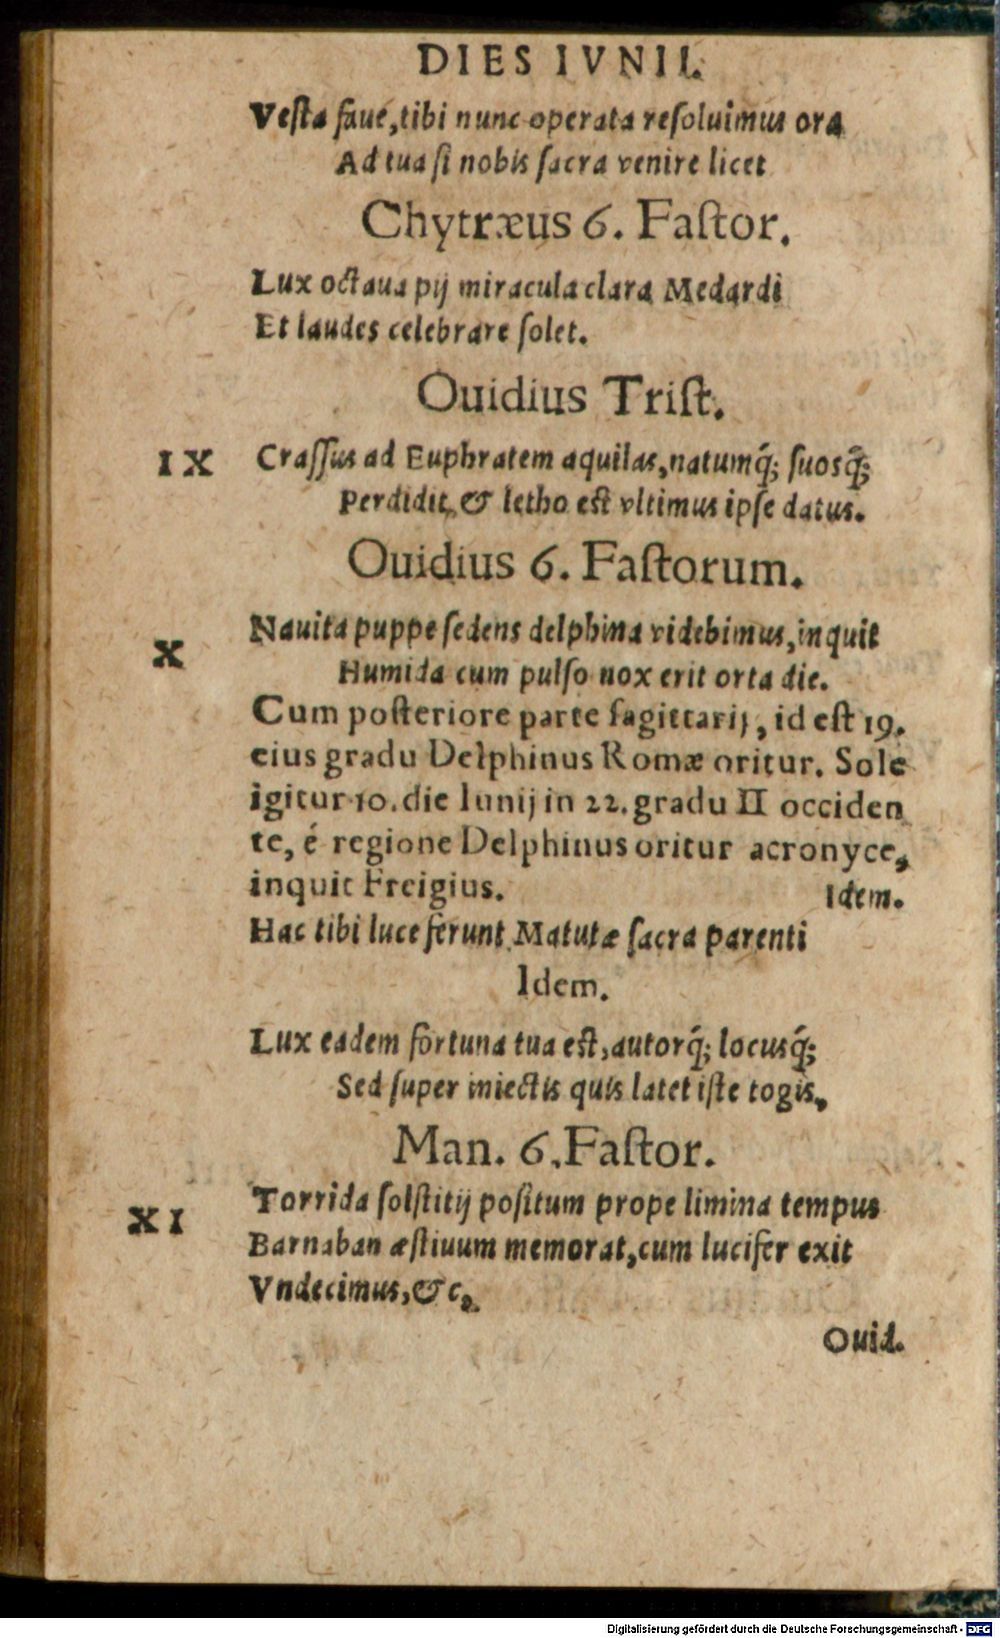 DIES IVNII.
Vesta faue, tibi nunc operata resoluimus ora
Ad tua si nobis sacra venire licet
Chytræus 6. Fastor.
Lux octaua pij miracula clara Medardi
Et laudes celebrare solet.
Ouidius Trist.
IX Crassus ad Euphratem aquilas, natumq́; suosq́;
Perdidit, & letho est vltimus ipse datus.
Ouidius 6. Fastorum.
X Nauita puppe sedens delphina videbimus, inquit
Humida cum pulso nox erit orta die.
Cum posteriore parte sagittarij, id est 19.
eius gradu Delphinus Romæ oritur. Sole
igitur 10. die Iunij in 22. gradu II occiden
te, é regione Delphinus oritur acronyce,
inquit Freigius. Idem.
Hac tibi luce ferunt Matutæ sacra parenti
Idem.
Lux eadem fortuna tua est, autorq́; locusq́;
Sed super iniectis quis latet iste togis,
Man. 6. Fastor.
XI Torrida solstitij positum prope limina tempus
Barnaban æstiuum memorat, cum lucifer exit
Vndecimus, & c,
Ouid.
Digitalisierung gefördert durch die Deutsche Forschungsgemeinschaft - DFG